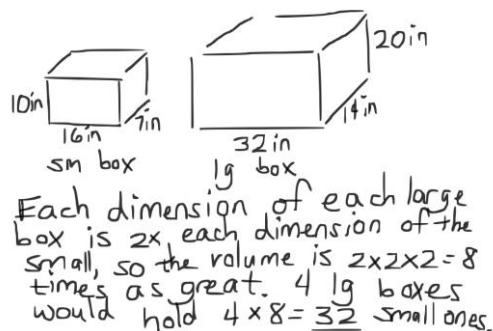 20in
10in
16in
7in
14in
32in
sm box
lg box
Each dimension of each large
box is 2x each dimension of the
small, so the volume is 2x2x2=8
times as great. 4 lg boxes
would hold 4x8=32 small ones